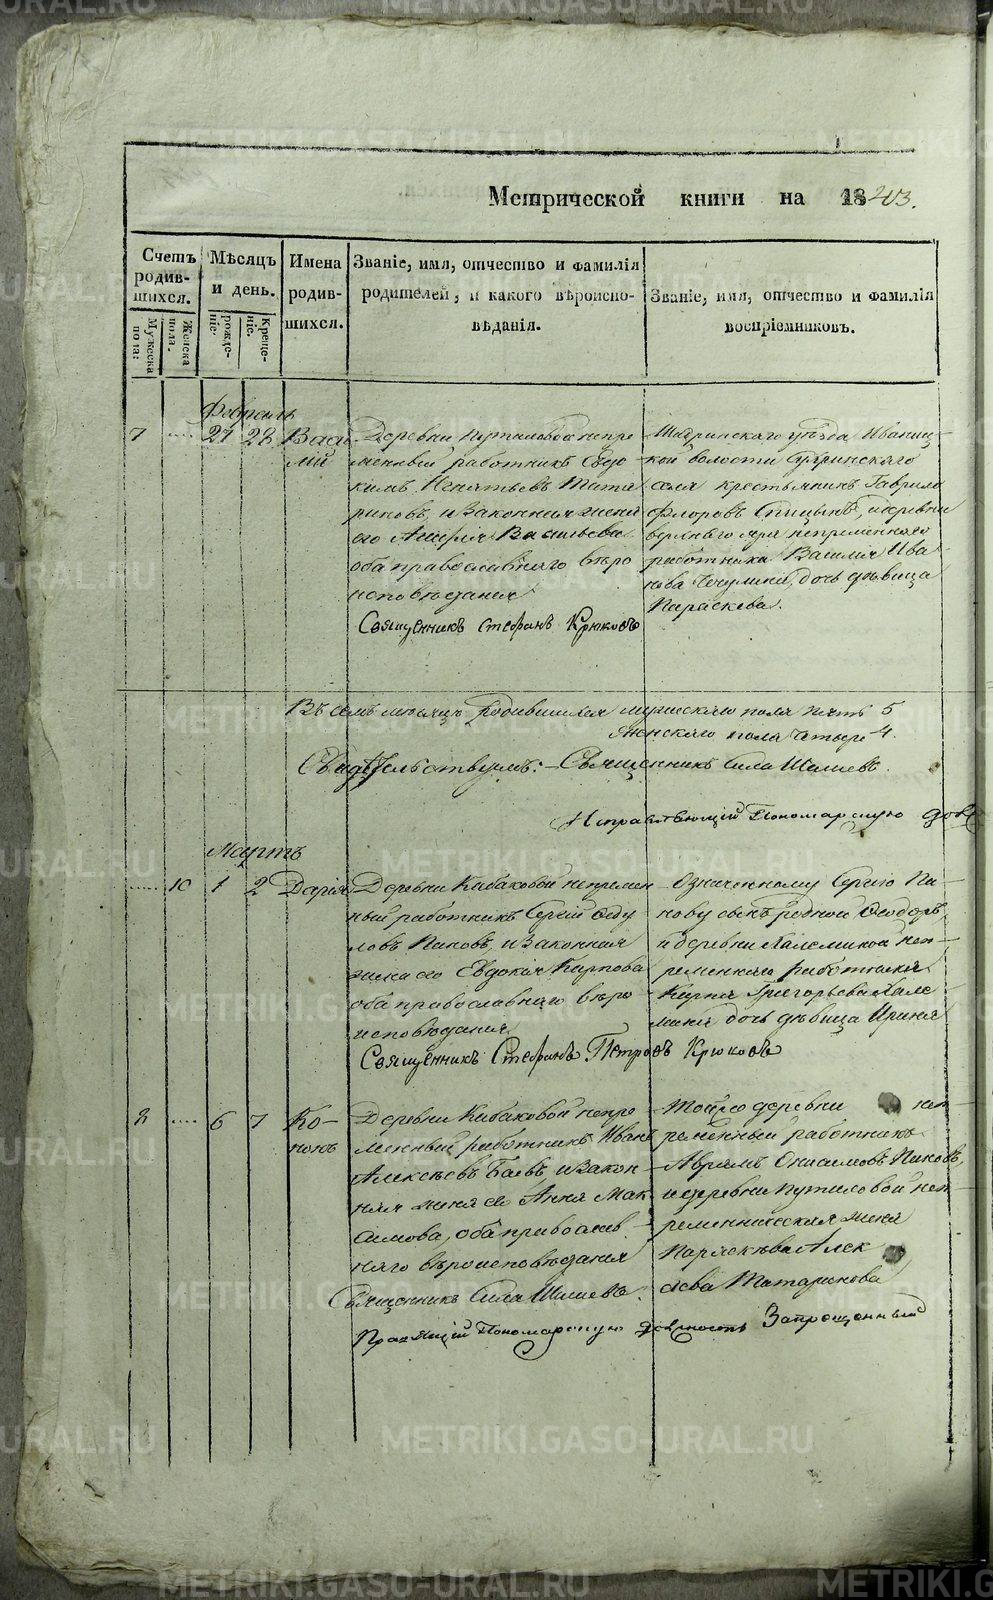 METRIKI.GASO-URAL.RU
Метрической книги на 1843.
Счетъ родив-шихся.
Мужеска пола:
Женска пола.
Мѣсяцъ и день.
рожде-ніе:
Креще-ніе.
Имена родив-шихся.
Званіе, имя, отчество и фамилія
родителей, и какого вѣроиспо-
вѣданія.
Званіе, имя, отчество и фамилія
воспріемниковъ.
Февраль
7 .... 27 28 Васи-
лій
Деревни Путиловой непре
менный работникъ Евдо
кимъ Игнатьевъ Тата
риновъ, и законная жена
его Васильева
оба православнаго вѣро
исповѣданія
Священникъ Стефанъ Крюковъ
уѣзда Ивани
кой волости
села крестьянинъ Гаврило
Флоровъ Спицынъ, и деревни
непременнаго
работника Василія Ива
нова дочь дѣвица
Параскева.
Въ семъ мѣсяцѣ родившихся мужескаго пола пять 5
женскаго пола четыре 4.
Свидѣтельствуемъ: Священникъ Сила
Исправляющій Пономарскую долж
Мартъ
.... 10 1 2 Дарія
Деревни Кабаковой непремен
ный работникъ Сергій Ѳеду
ловъ Пановъ, и законная
жена его Евдокія Карпова
оба православнаго вѣро
исповѣданія
Священникъ Стефанъ Петровъ Крюковъ
Означенному Сергію Па-
нову сынъ родной Ѳеодоръ,
и деревни неп-
ременнаго работника
Карпа Григорьева
дочь дѣвица Ирина
8 .... 6 7 Ко-
нонъ
Деревни Кабаковой непре
менный работникъ Иванъ
Алексѣевъ Баевъ и закон
ная жена его Анна Мак
симова, оба православ
наго вѣроисповѣданія
Священникъ Сила
Правящій Пономарскую должность Запрещенный
Тойже деревни неп-
ременный работникъ
Аврамъ Онисимовъ Пановъ,
и деревни Путиловой неп-
ременническая жена
Параскева Алек
сѣева Татаринова